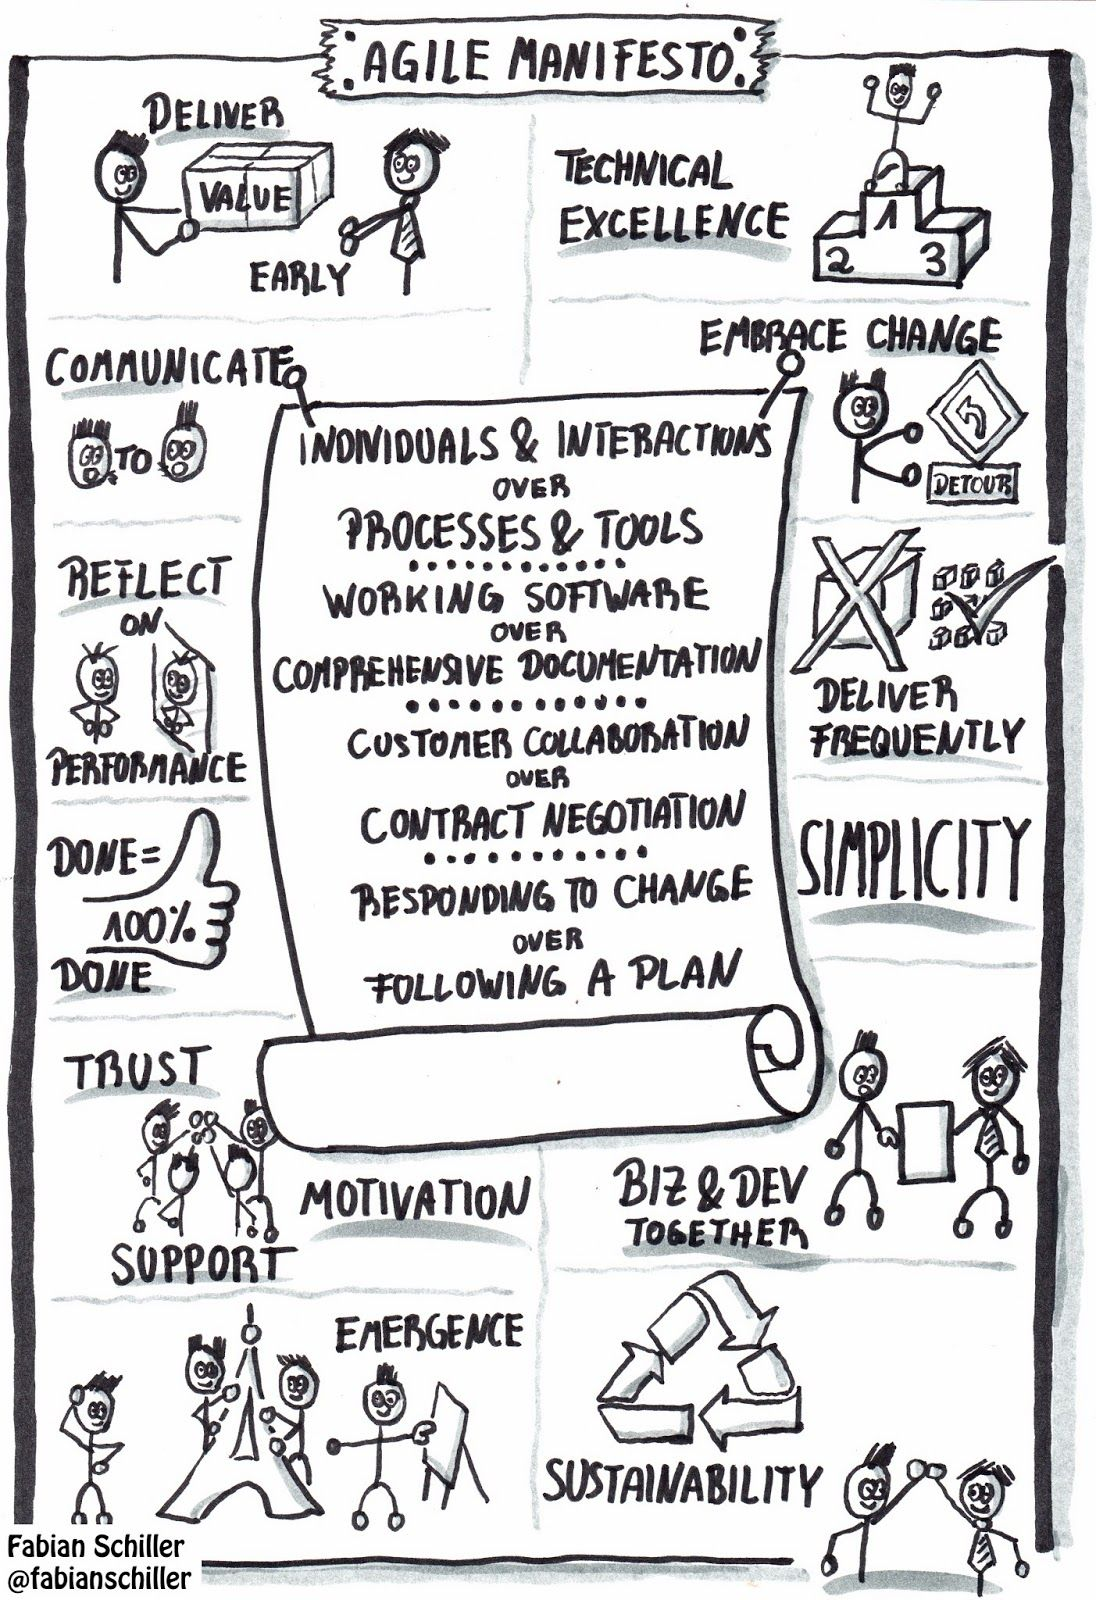 AGILE MANIFESTO
DELIVER
VALUE
EARLY
TECHNICAL
EXCELLENCE
1
2
3
COMMUNICATE
TO
EMBRACE CHANGE
DETOUR
INDIVIDUALS & INTERACTIONS
OVER
PROCESSES & TOOLS
WORKING SOFTWARE
OVER
COMPREHENSIVE DOCUMENTATION
CUSTOMER COLLABORATION
OVER
CONTRACT NEGOTIATION
RESPONDING TO CHANGE
OVER
FOLLOWING A PLAN
REFLECT
ON
PERFORMANCE
DELIVER
FREQUENTLY
DONE =
100%
DONE
SIMPLICITY
TRUST
MOTIVATION
SUPPORT
BIZ & DEV
TOGETHER
EMERGENCE
SUSTAINABILITY
Fabian Schiller
@fabianschiller